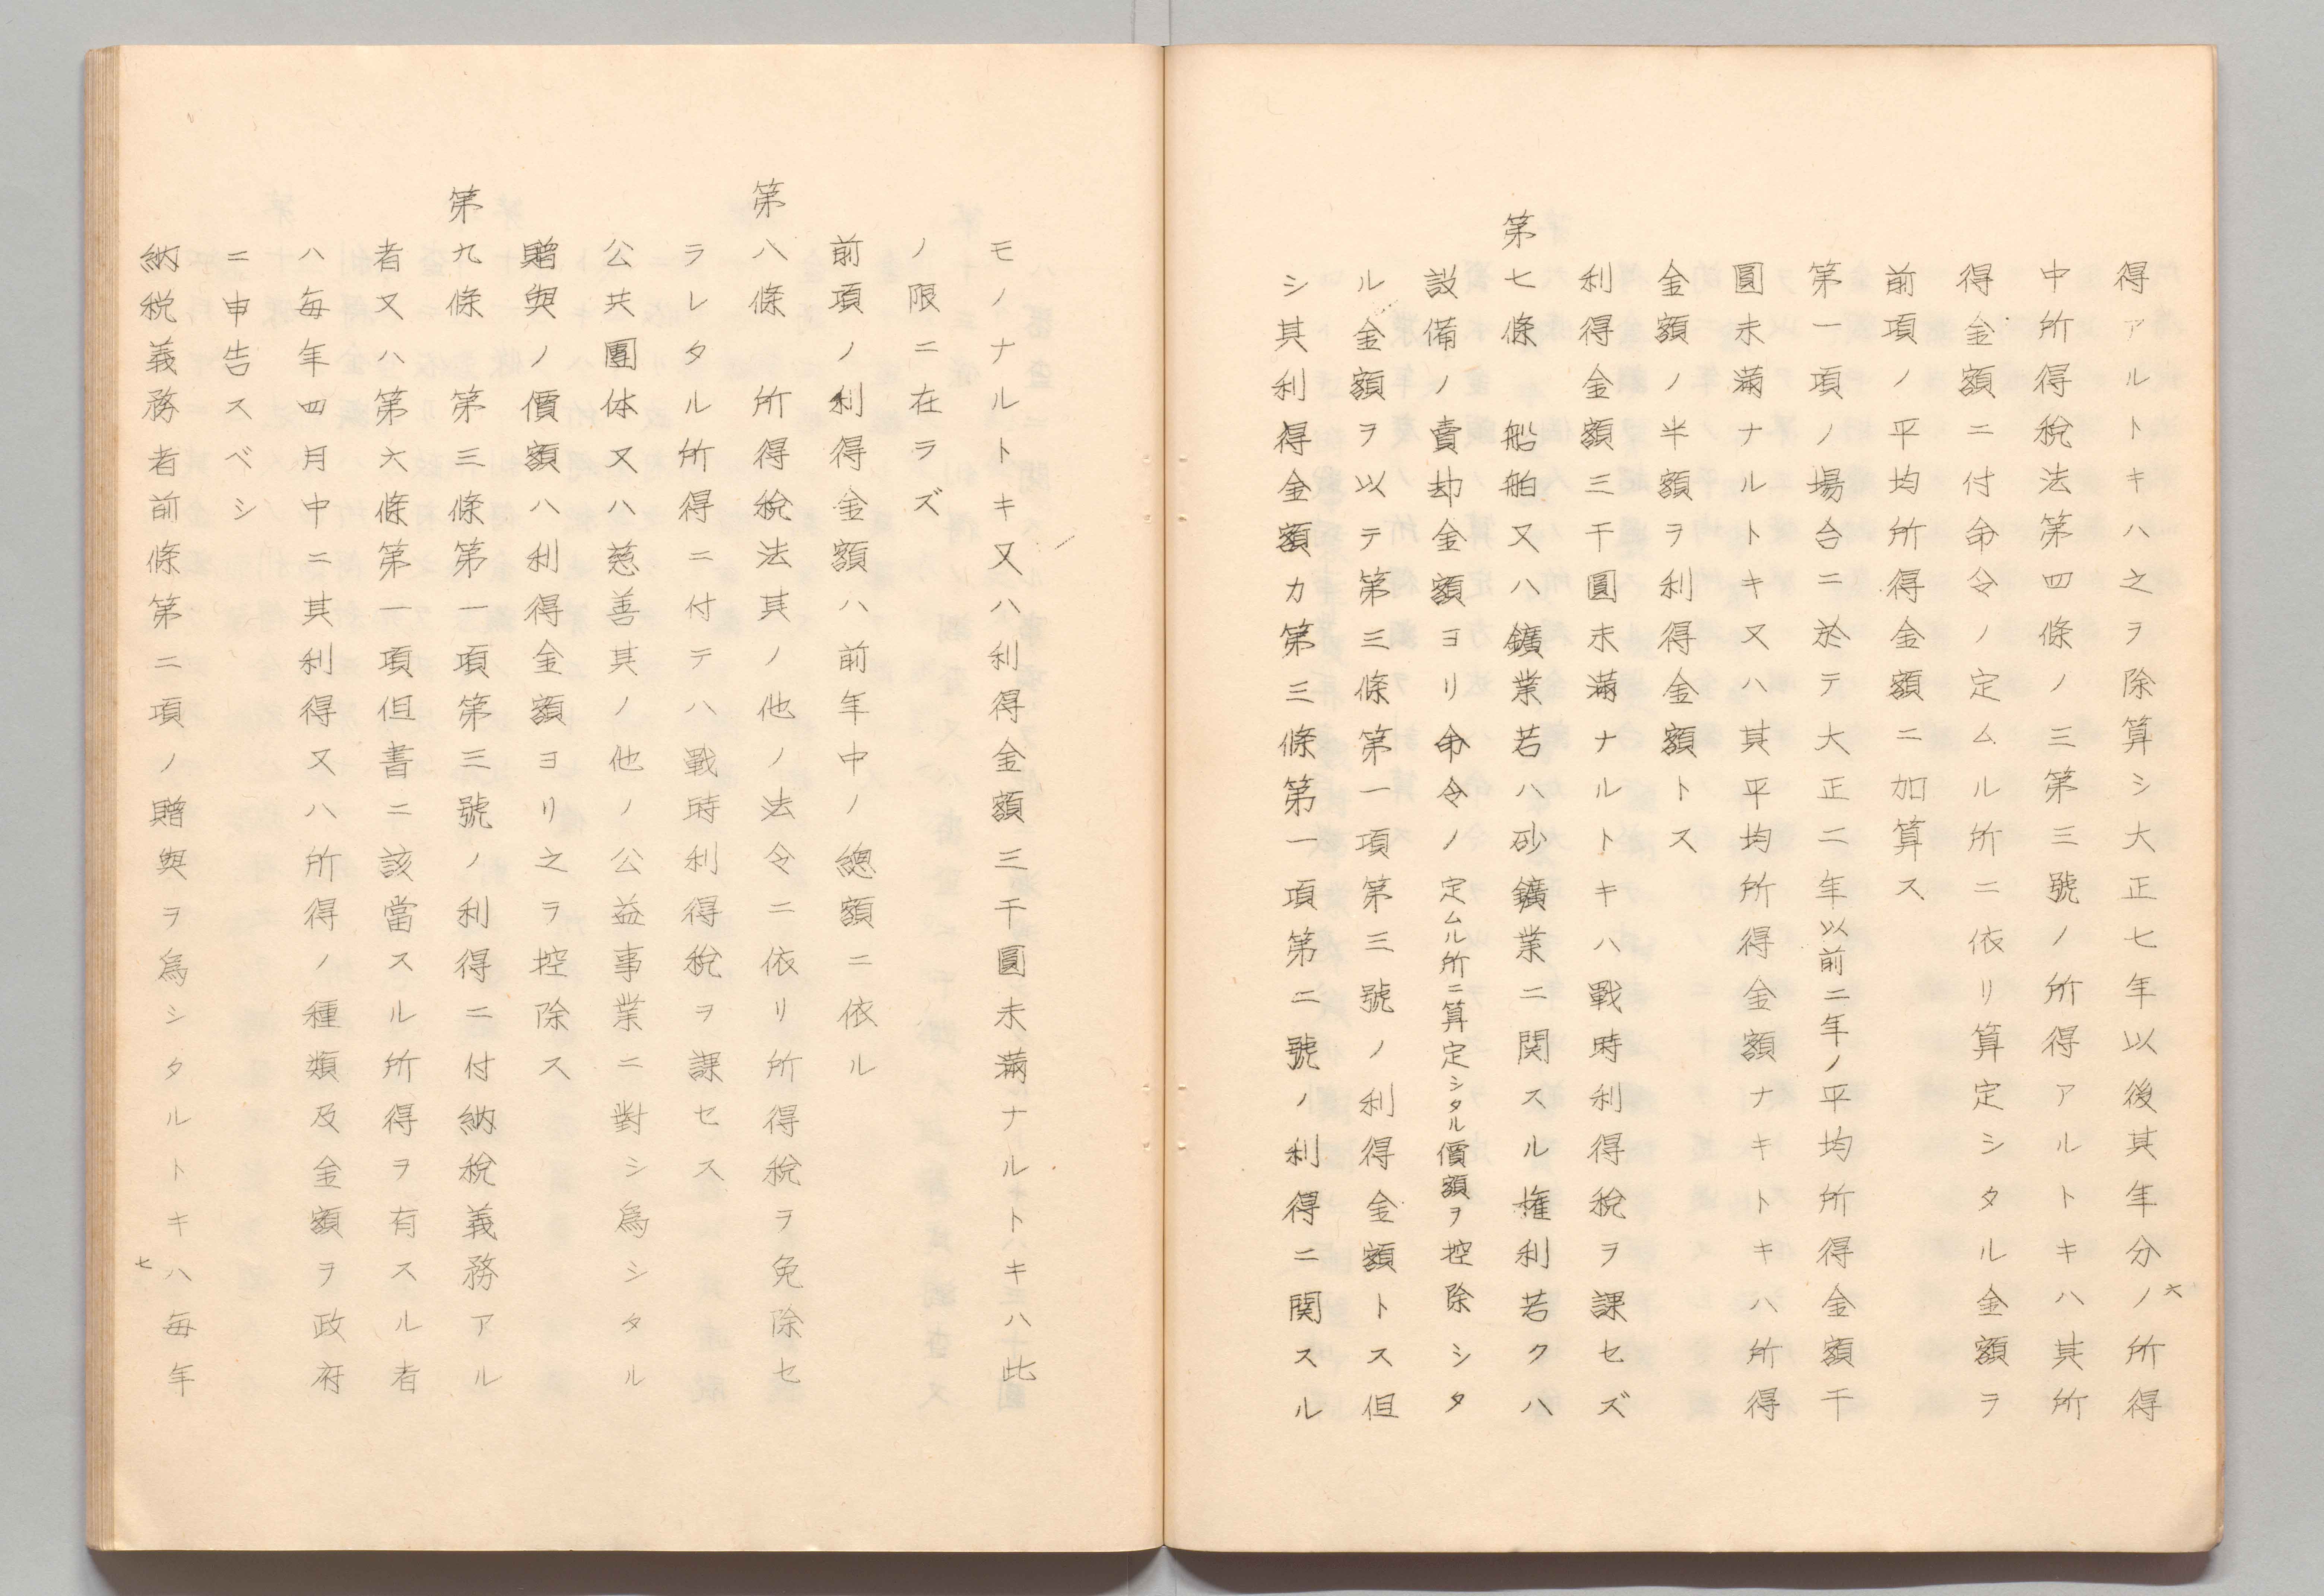 得アルトキハ之ヲ除算シ大正七年以後其年分ノ所得
中所得稅法第四條ノ三第三號ノ所得アルトキハ其所
得金額ニ付命令ノ定ムル所ニ依リ算定シタル金額ヲ
前項ノ平均所得金額ニ加算ス
第一項ノ場合ニ於テ大正二年以前二年ノ平均所得金額千
圓未滿ナルトキ又ハ其平均所得金額ナキトキハ所得
金額ノ半額ヲ利得金額トス
利得金額三千圓未滿ナルトキハ戰時利得稅ヲ課セズ
第七條 船舶又ハ鑛業若ハ砂鑛業ニ関スル権利若クハ
設備ノ賣却金額ヨリ命令ノ定ムル所ニ算定シタル價額ヲ控除シタ
ル金額ヲ以テ第三條第一項第三號ノ利得金額トス但
シ其利得金額カ第三條第一項第二號ノ利得ニ関スル
六
モノナルトキ又ハ利得金額三千圓未滿ナルトキハ此
ノ限ニ在ラズ
前項ノ利得金額ハ前年中ノ總額ニ依ル
第八條 所得稅法其ノ他ノ法令ニ依リ所得稅ヲ免除セ
ラレタル所得ニ付テハ戰時利得稅ヲ課セス
公共團体又ハ慈善其ノ他ノ公益事業ニ對シ爲シタル
贈與ノ價額ハ利得金額ヨリ之ヲ控除ス
第九條 第三條第一項第三號ノ利得ニ付納稅義務アル
者又ハ第六條第一項但書ニ該當スル所得ヲ有スル者
ハ毎年四月中ニ其利得又ハ所得ノ種類及金額ヲ政府
ニ申告スベシ
納稅義務者前條第二項ノ贈與ヲ爲シタルトキハ毎年
七